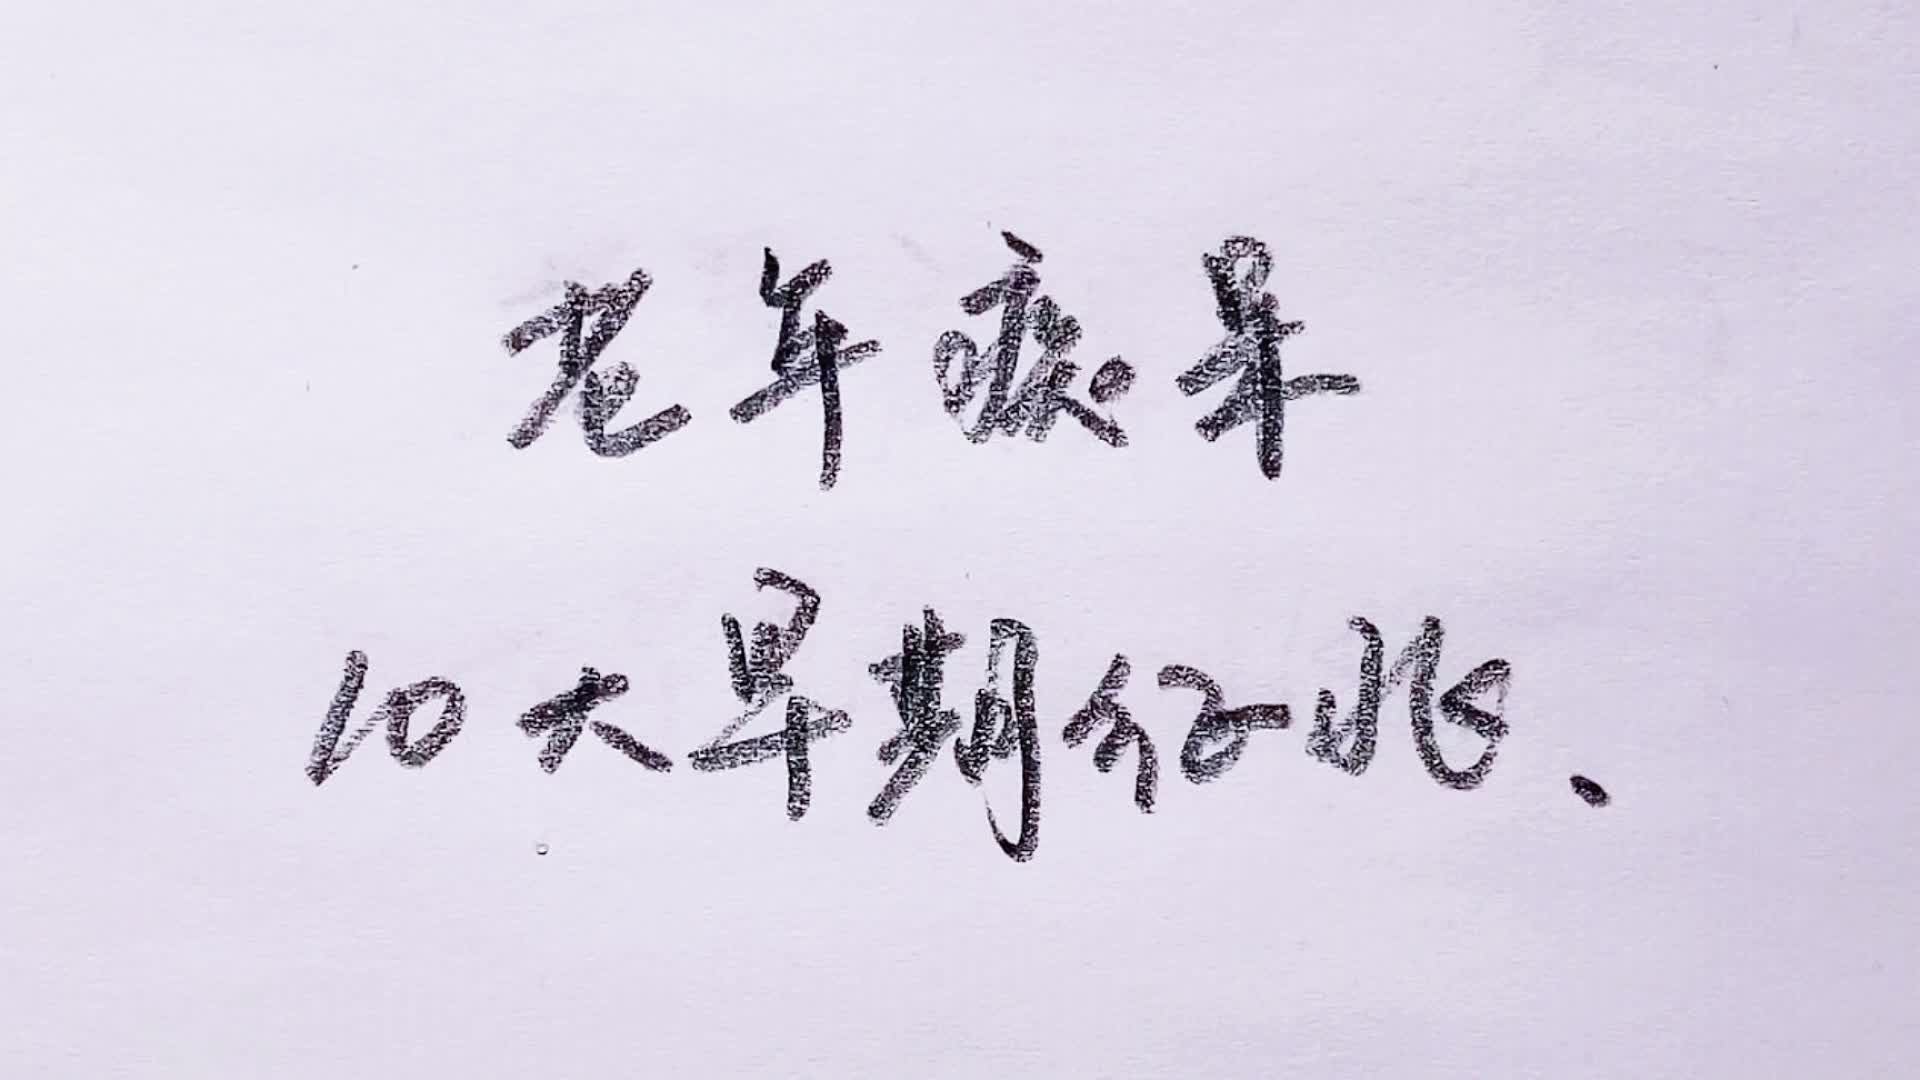 老年痴呆
10大早期征兆、